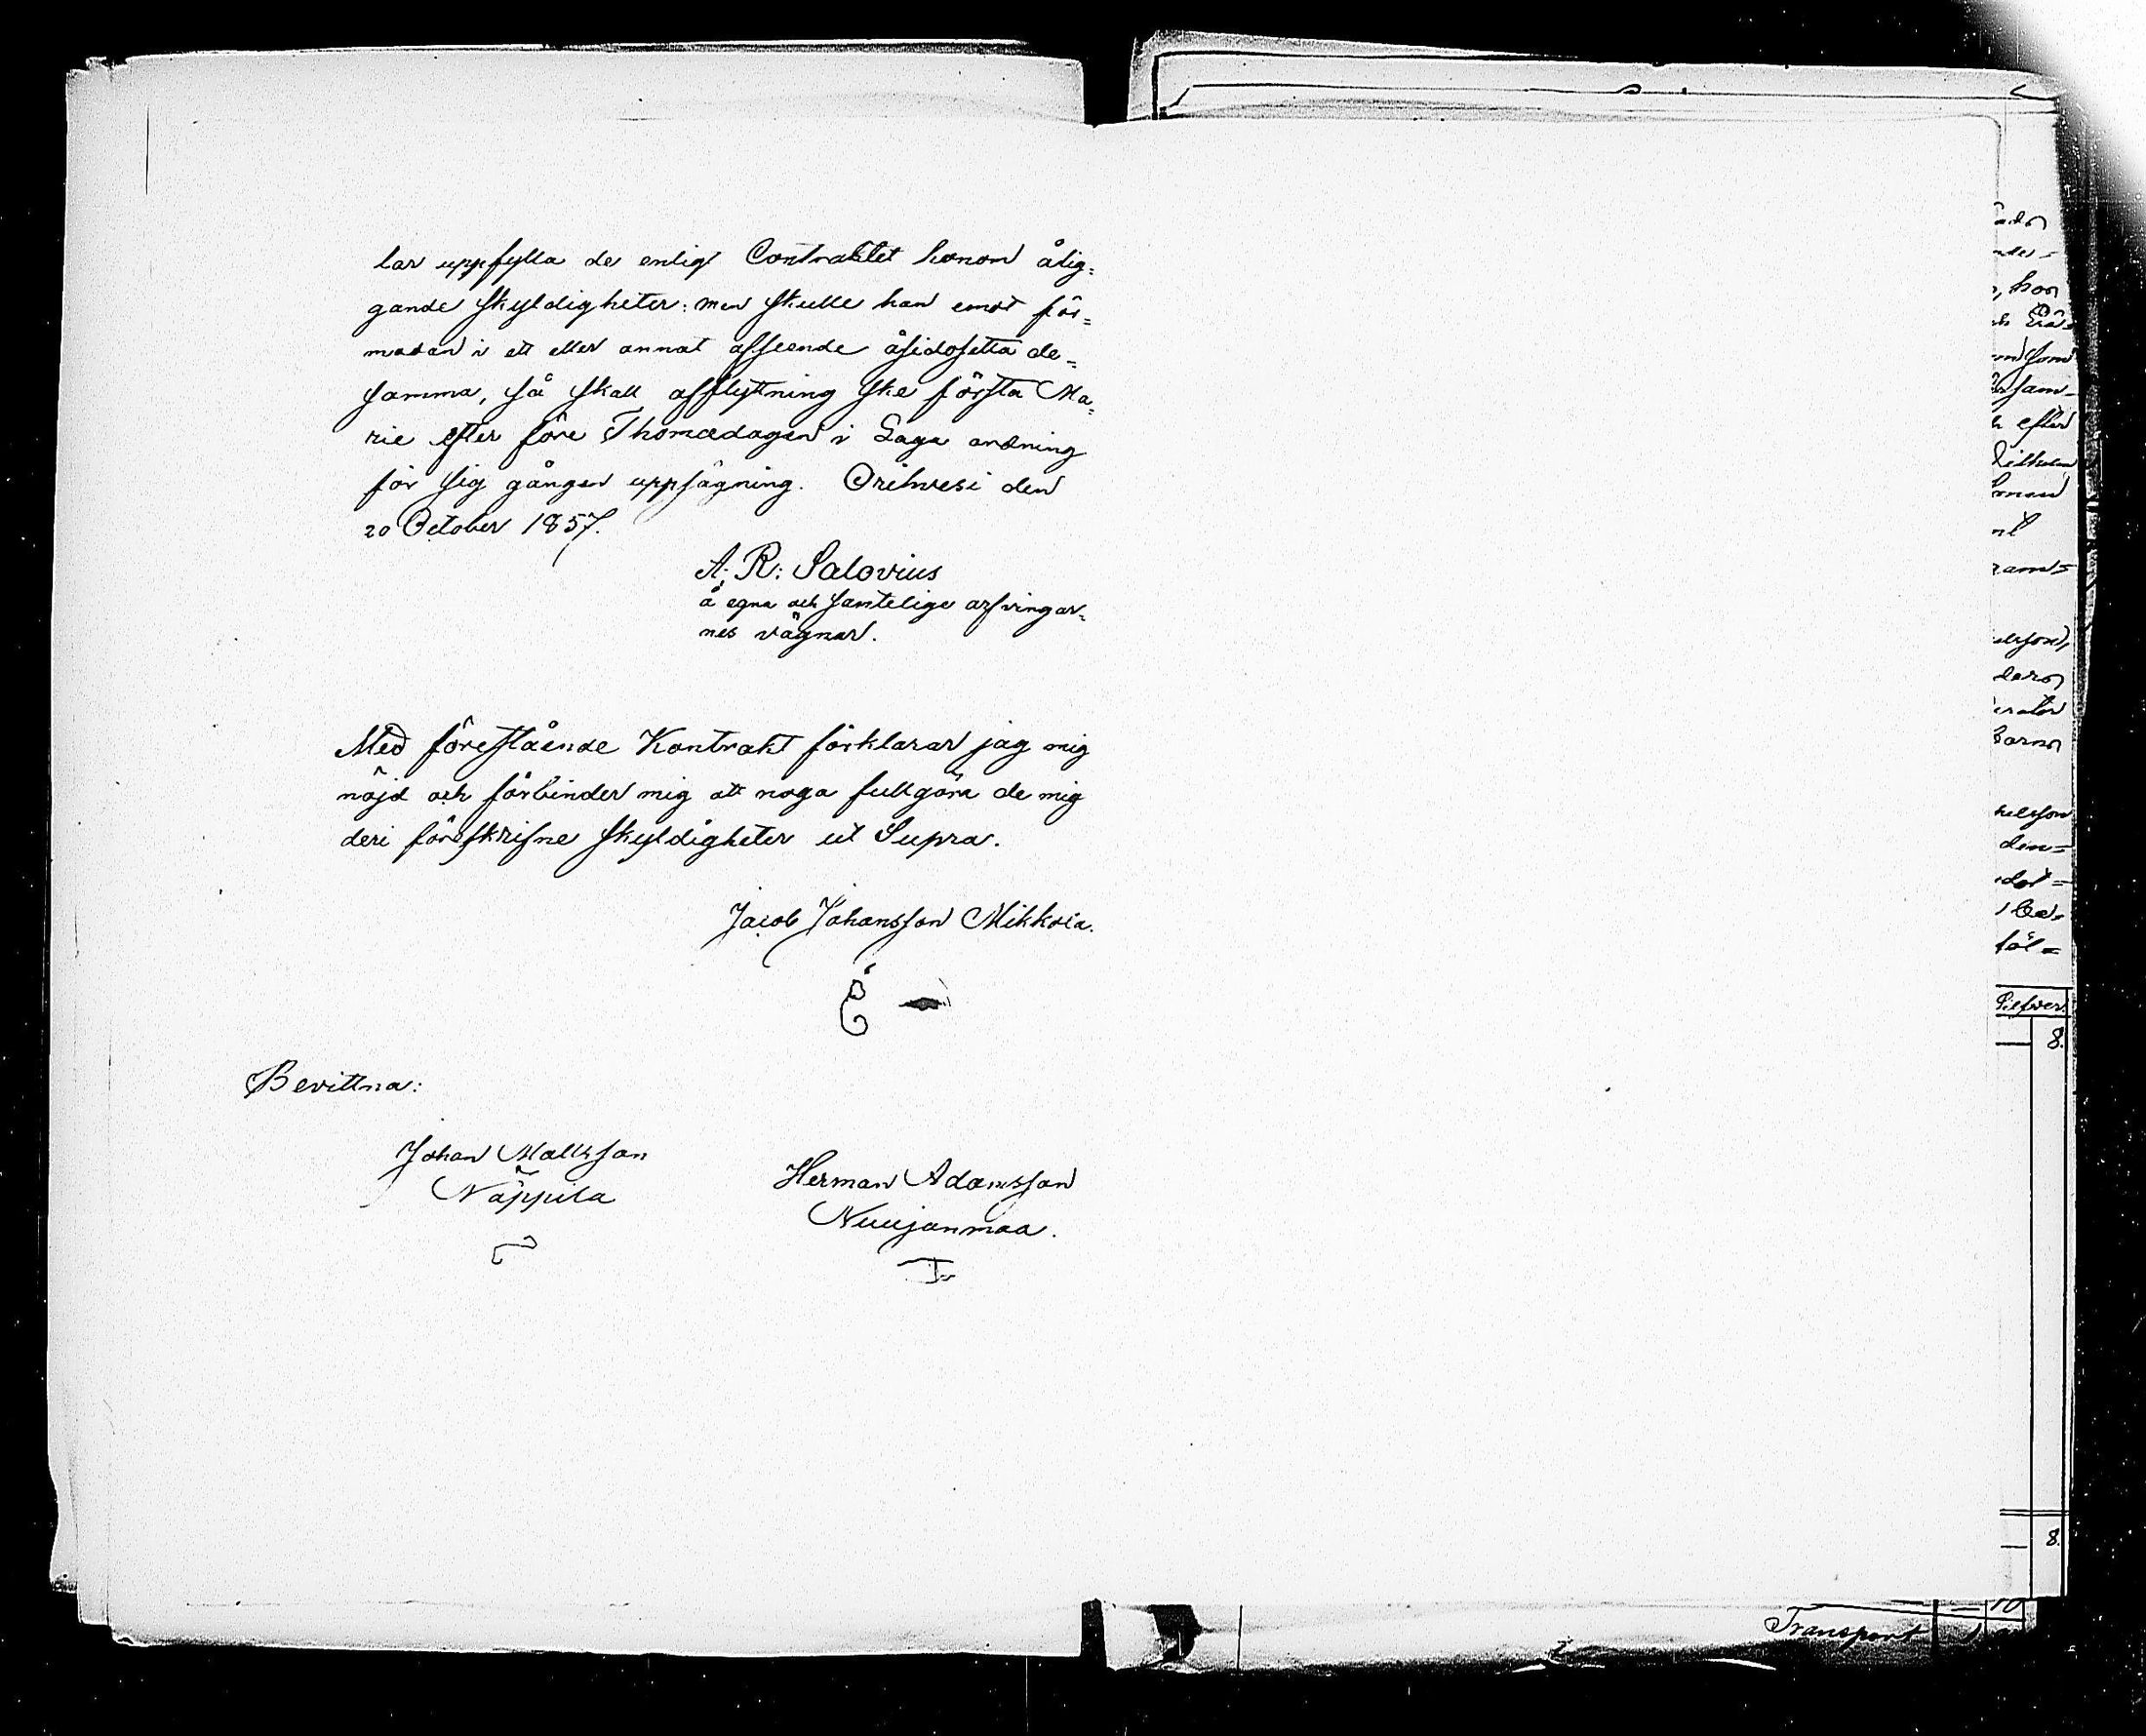 lar uppfylla de enligt Contraktet honom ålig=
gande skyldigheter: men skulle han emot för=
modan i ett eller annat afseende åsidosätta de=
samma, så skall afflyttning ske första Ma=
rie efter före Thomædagen i Laga ordning
för sig gången uppsägning. Orihvesi den
20 October 1857.
A. R: Salovius
å egna och samtelige arfvingar=
nes vägnar.
Med förestående Kontrakt förklarar jag mig
nöjd och förbinder mig att noga fullgöra de mig
deri föreskrifne skyldigheter ut Supra.
Jacob Johansson Mikkola.
Bevittna:
Johan Mattsson
Näppilä
Herman Adamsson
Nuujanmaa.
, hon
som
sam=
efter
den=
föl=
Silfver
8.
8.
10
Transport